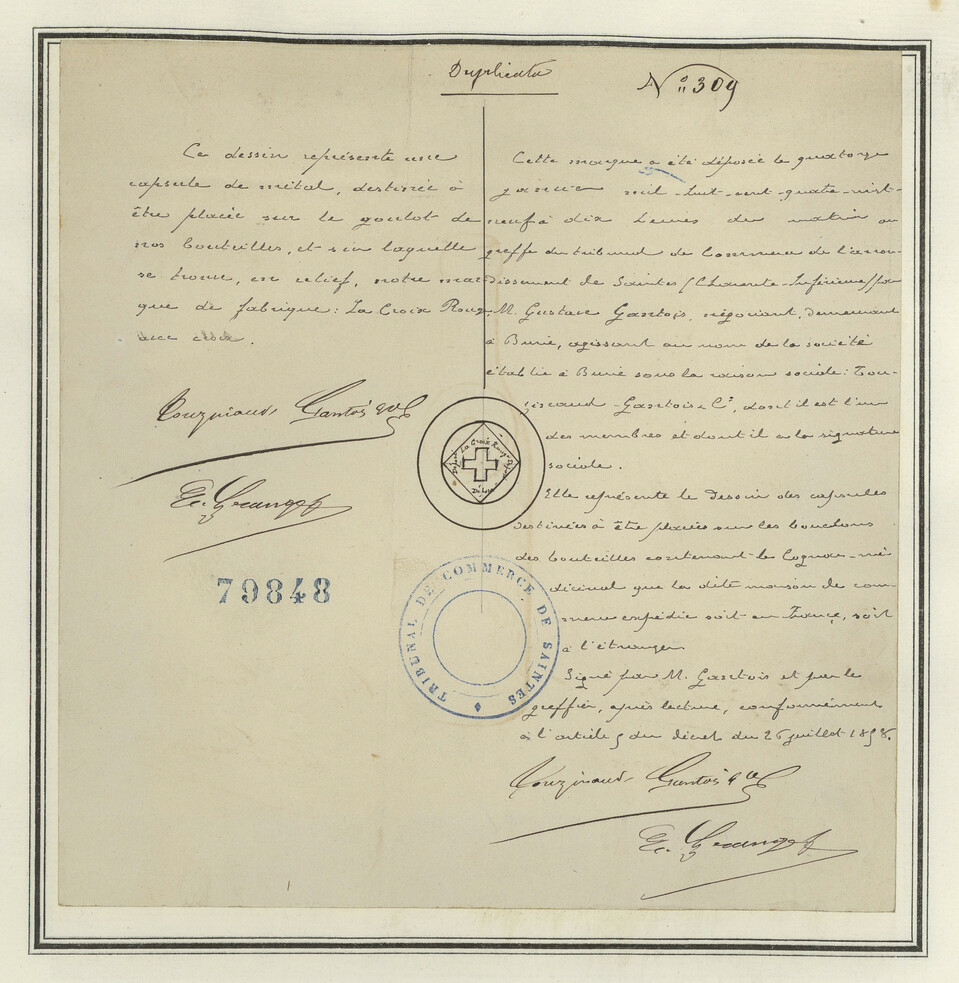 Duplicata
N° 309
Ce dessin représente une
capsule de métal, destinée à
être placée sur le goulot de
nos bouteilles, et sur laquelle
se trouve, en relief, notre mar-
que de fabrique: La Croix Rouge,
avec
Gantois & Cie
79848
Cette marque a été déposée le quatorze
janvier mil-huit-cent-quatre-vingt-
neuf à dix heures du matin au
greffe du tribunal de Commerce de l'arron-
dissement de Saintes (Charente-Inférieure) par
M. Gustave Gantois, négociant, demeurant
à Burie, agissant au nom de la société
établie à Burie sous la raison sociale: Tou-
Gantois & Cie, dont il est l'un
des membres et dont il a la signature
sociale.
Elle représente le dessin des capsules
destinées à être placées sur les bouchons
des bouteilles contenant le Cognac-mé-
dicinal que la dite maison de com-
merce expédie soit en France, soit
à l'étranger.
Signé par M. Gantois et par le
greffier, après lecture, conformément
à l'article 5 du décret du 26 juillet 1858.
Gantois & Cie
La Croix Rouge
Déposé
TRIBUNAL DE COMMERCE DE SAINTES